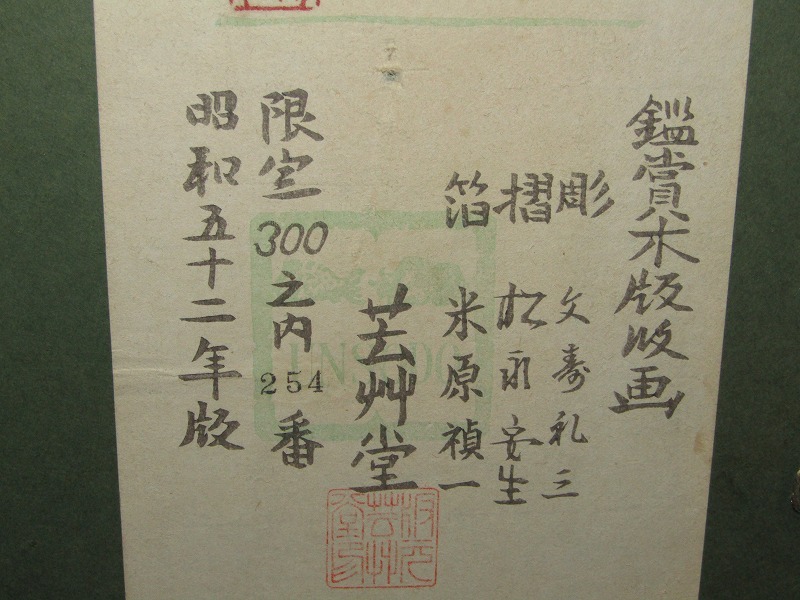 鑑賞木版版画
彫 文寿礼三
摺 松永安生
箔 米原禎一
芸艸堂
限定300之内254番
昭和五十二年版
版元芸艸堂印